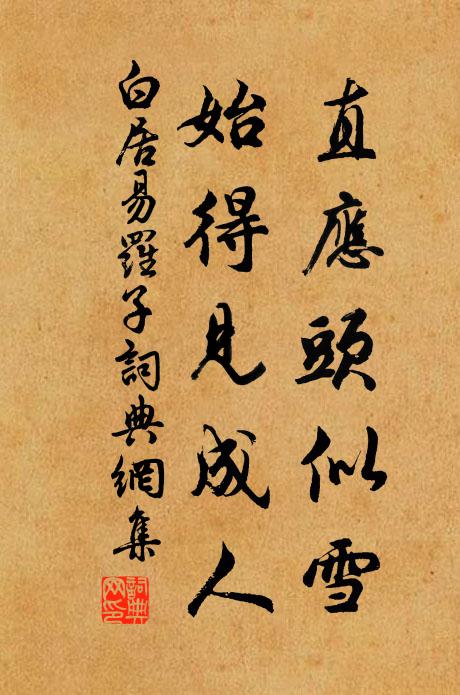 直應頭似雪
始得見成人
白居易羅子詞典網集
詞典網印